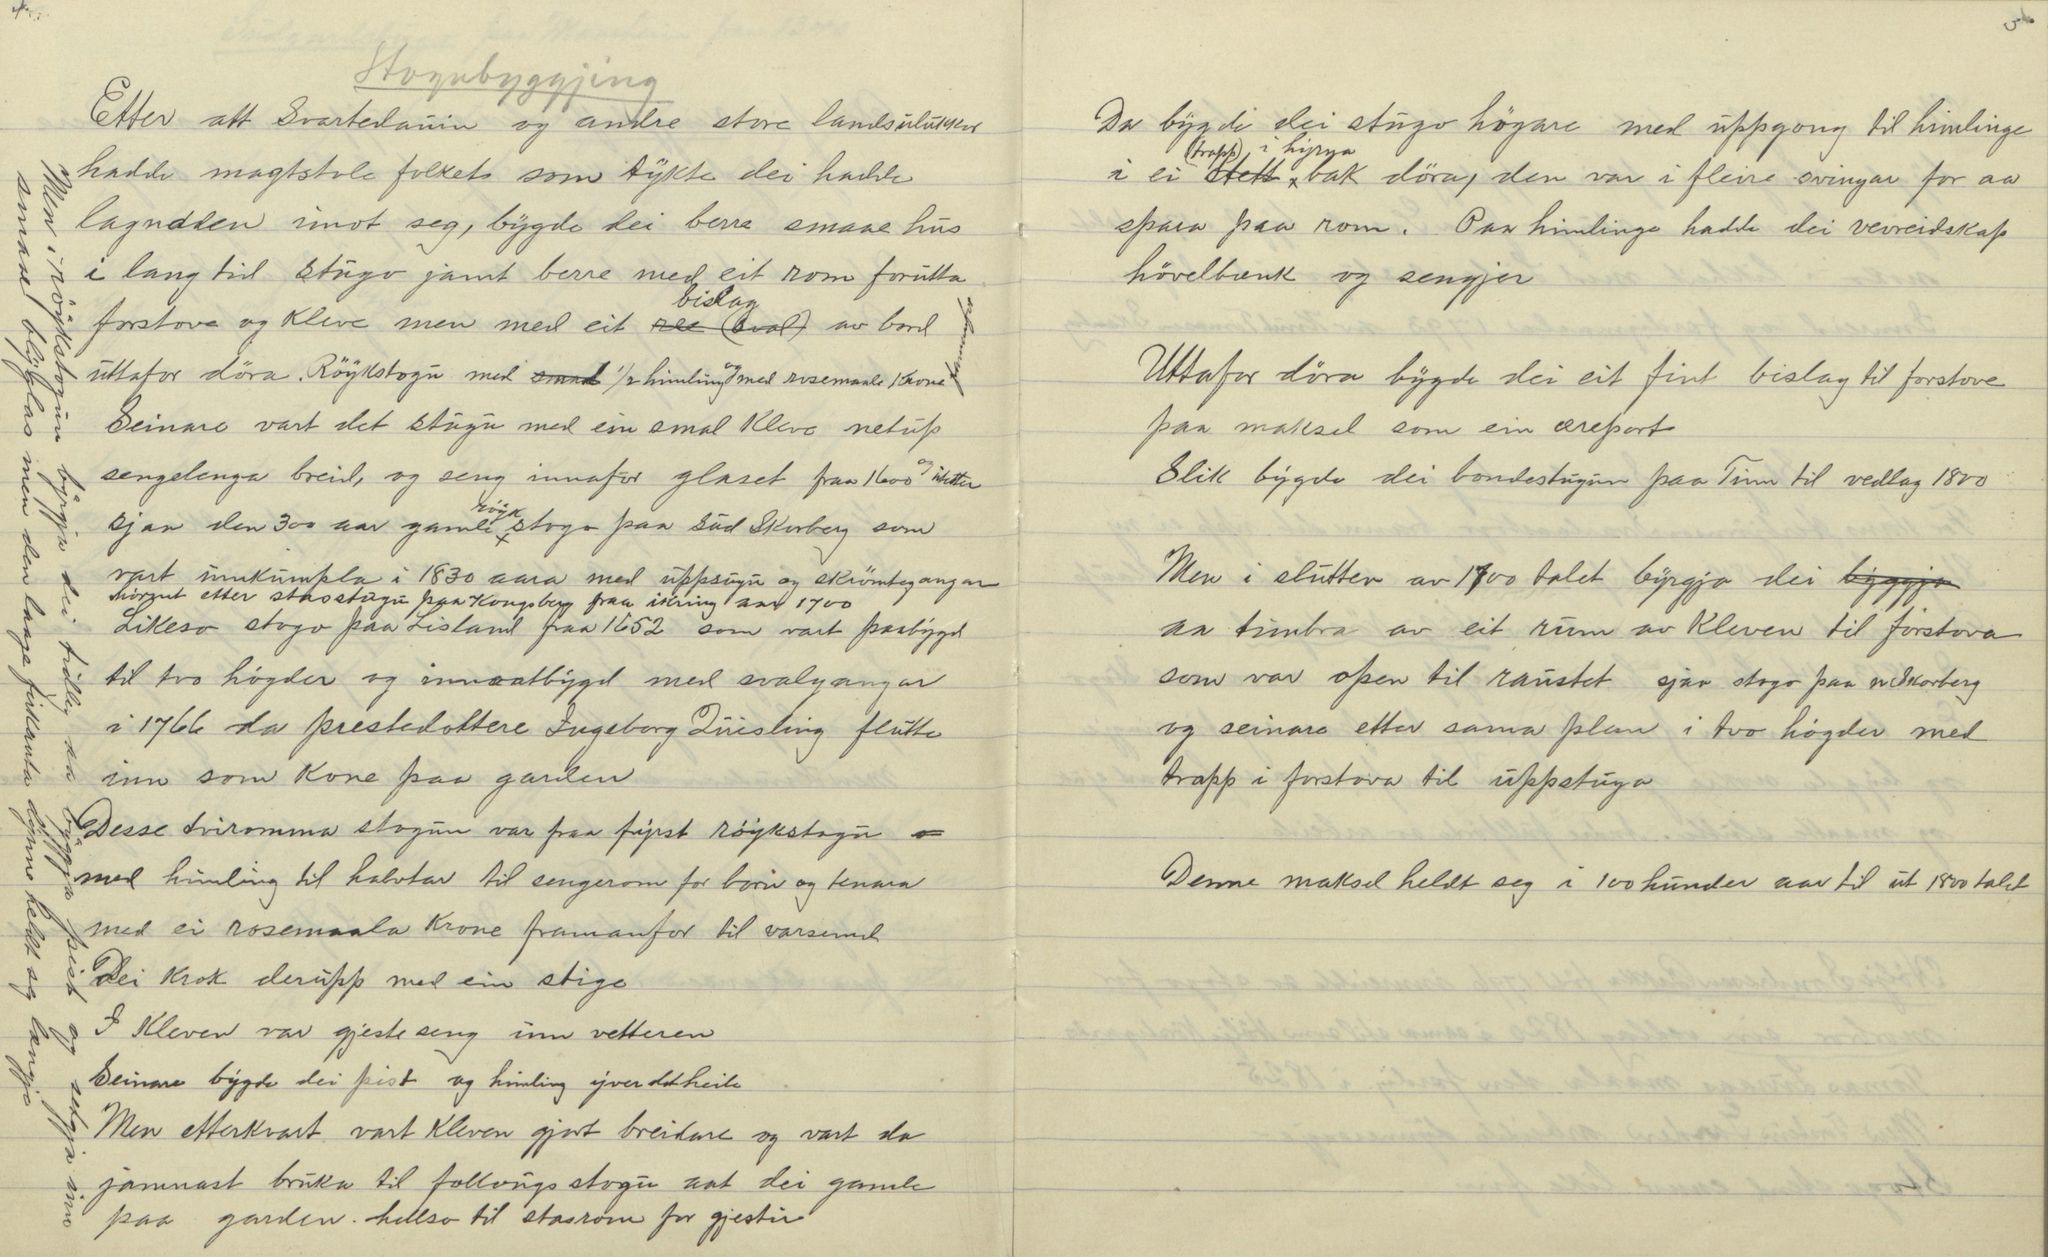 Stogubyggjing
Etter att Svartedauin og andre store landsulukkor
hadde magtstole folket som tykte dei hadde
lagnadden imot seg, bygde dei berre smaae hus
i lang tid stugo jamt berre med eit rom forutta
forstova og kleve men med eit bislag (sval) av bord
uttafor döra. Röykstogu med smaa 1/2 himling og med rosemaale krone
Seinare vart det stugu med ein smal kleve netup
sengelenga breid, og seng innafor glaset fraa 1600 og utetter
sjaa den 300 aar gamle röyk stogo paa Sud Skorberg som
vart umkumpla i 1830 aara med uppsugu og skrömtegangar
Likeso stogo paa Lisland fraa 1652 som vart paabygd
hirgut etter stasstugu paa Kongsberg fraa ikring aar 1700
til tvo högder og innaatbygd med svalgangar
i 1766 da prestedottere Ingeborg Quisling flutte
inn som kone paa garden
Desse tviromma stogun var fraa fyrst röykstogu
med himling til halvtar til sengerom for born og tenara
med ei rosemaala krone framanfor til varsemd
Dei krok derupp med ein stige
I kleven var gjesteseng inn vetteren
Seinare bygde dei peist og himling yver det heile
Men etterkvart vart kleven gjort breidare og vart da
jamnast bruka til folkungsstogu aat dei gamle
paa garden. hellso til stasrom for gjestir
Men i röykstogun byrgja dei tidleg aa byggja peist og setja inn
smaae blyglas men den laage firkanta dynne heldt seg lengje
3
Da bygde dei stugo högare med uppgong til himlinge
(trapp) i hyrna
i ei stett bak döra, den var i fleire svingar for aa
spara paa rom. Paa himlinge hadde dei vevreidskap
hövelbænk og sengjer
Uttafor döra bygde dei eit fint bislag til forstove
paa maksel som ein æreport
Slik bygde dei bondestugun paa Tinn til vedlag 1800
Men i slutten av 1700 talet byrgja dei byggja
aa timbra av eit rum av kleven til forstova
som var open til raustet sjaa stogo paa n. Skorberg
og seinare etter sama plan i tvo högder med
trapp i forstova til uppstuga
Denne maksel heldt seg i 100 hunder aar til ut 1800 talet